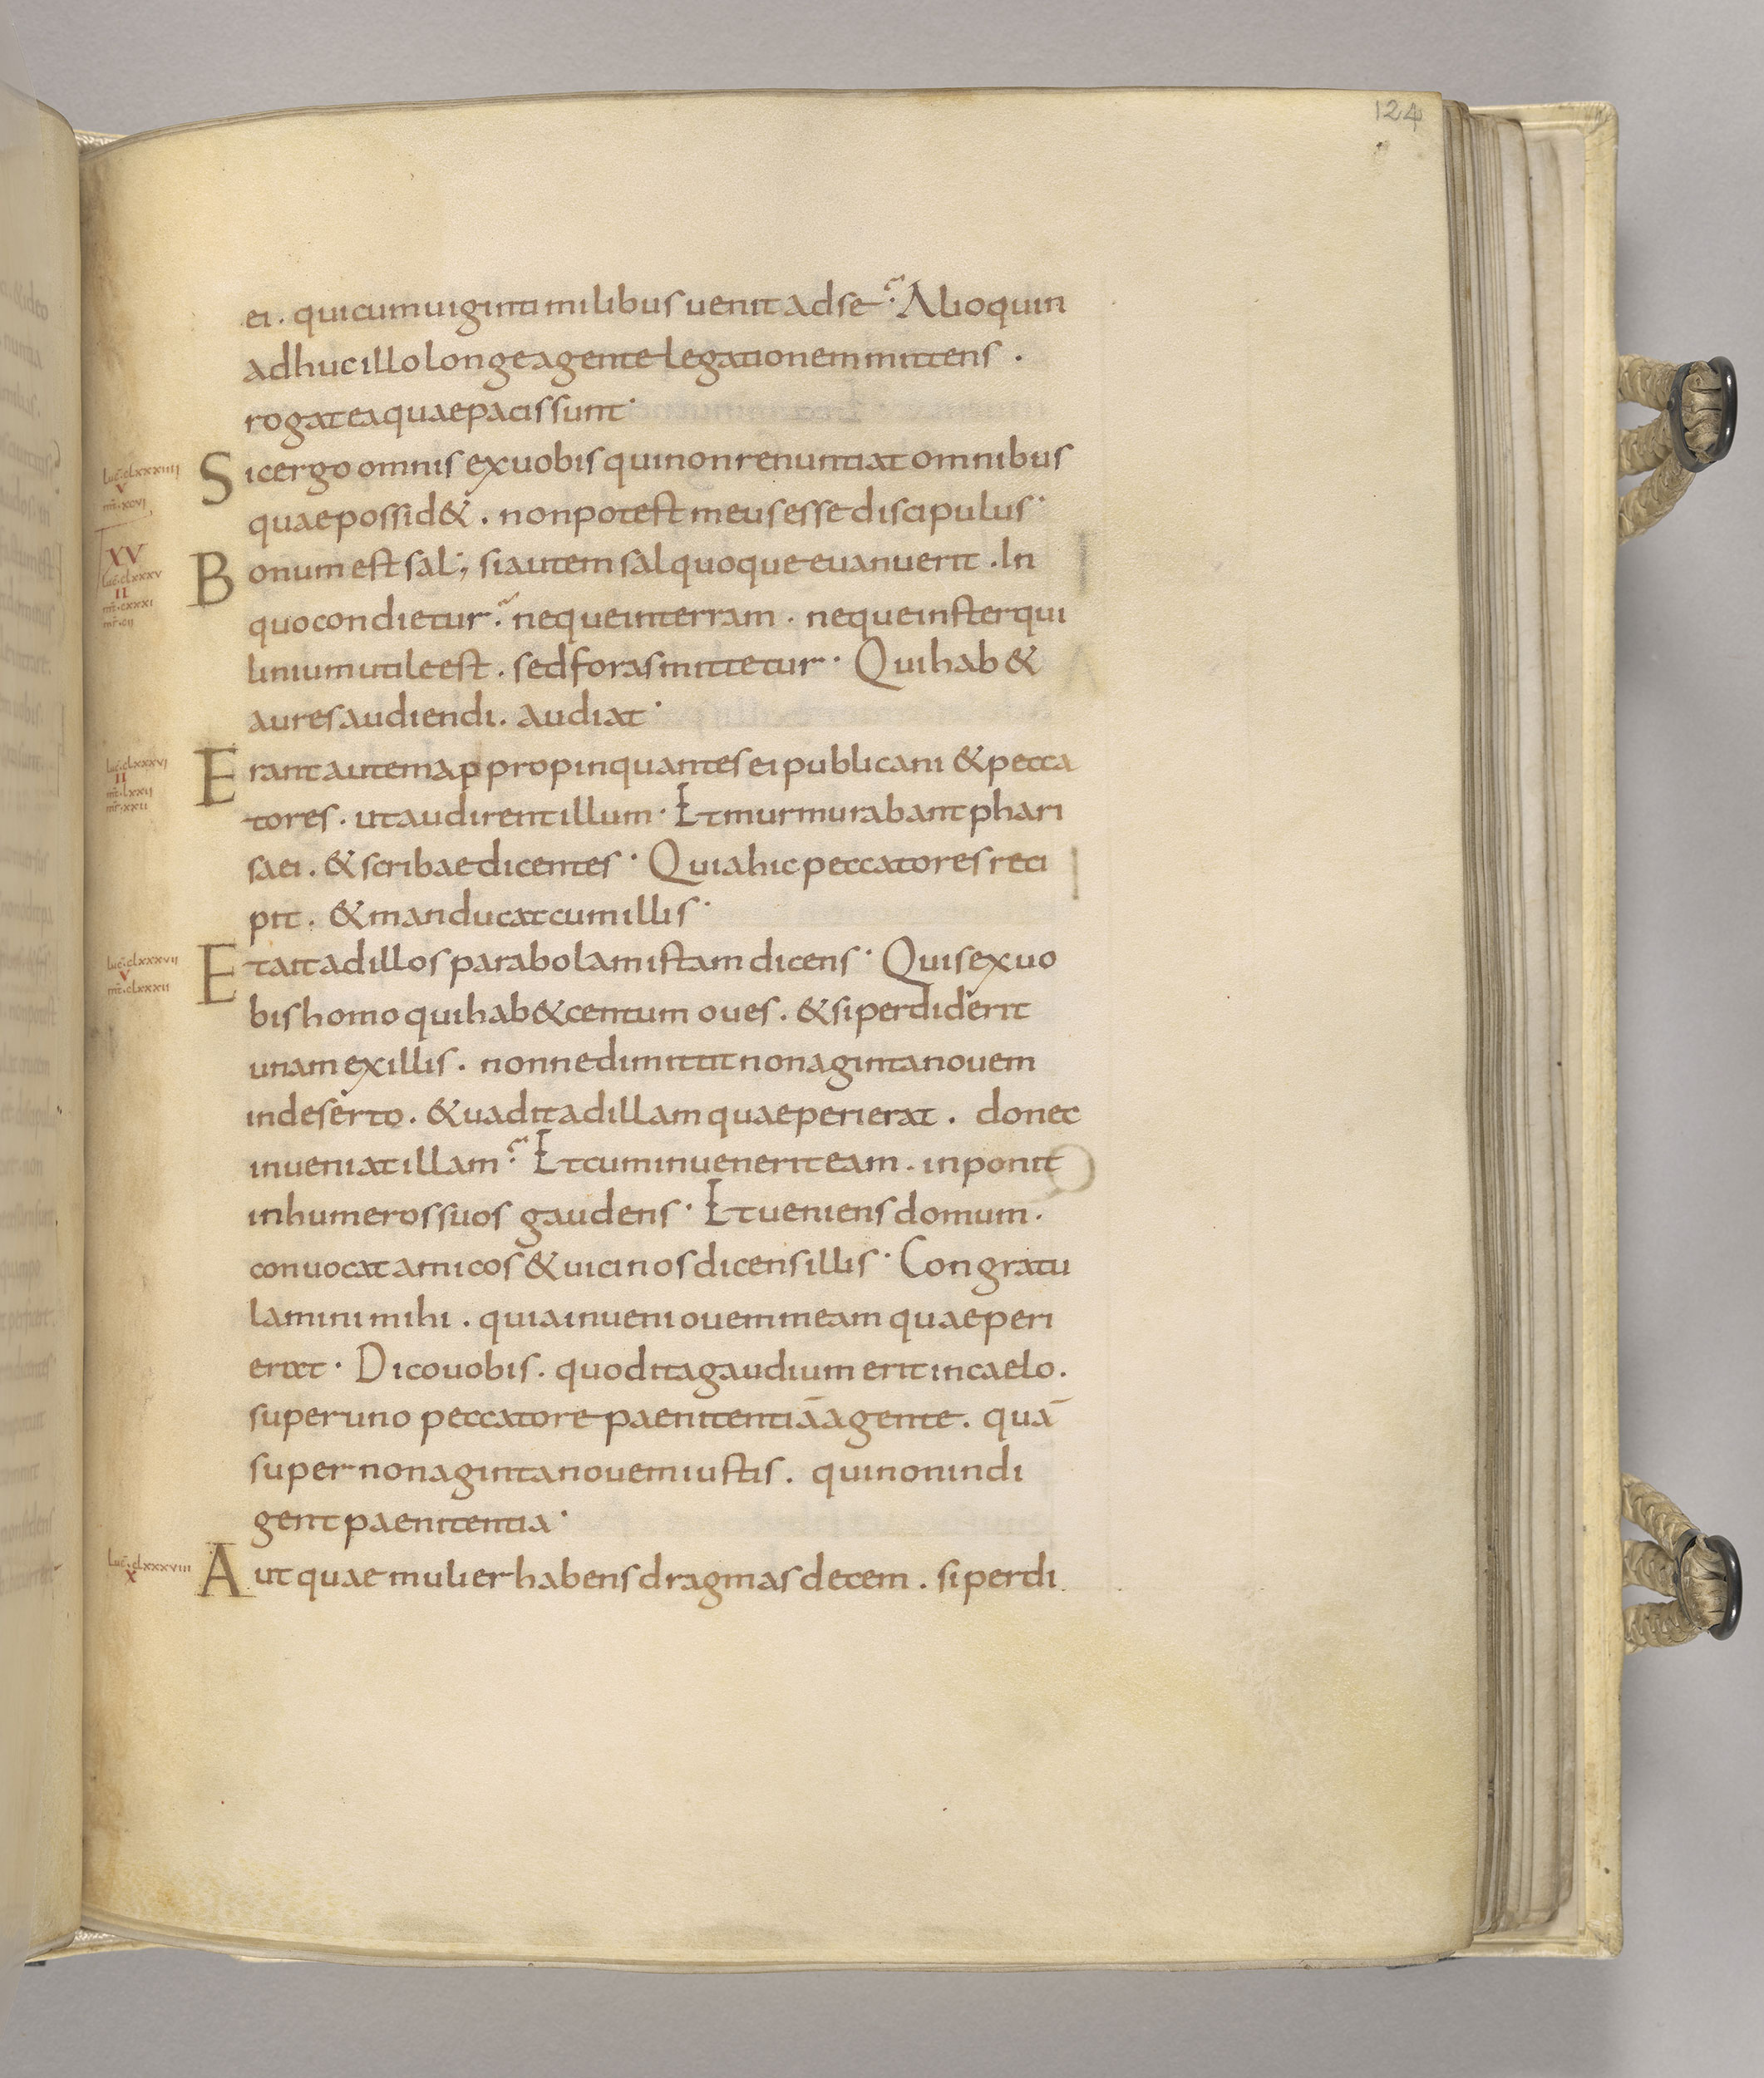 124
ei. qui cum uiginti milibus uenit ad se? Alioquin
adhuc illo longe agente legationem mittens.
rogat ea quae pacis sunt·
luc̅·clxxxiiii
V
mt̅·xcvi
Sic ergo omnis ex uobis qui non renuntiat omnibus
quae possid&. non potest meus esse discipulus·
XV
luc̅·clxxxv
II
mt̅·cxxxi
mr̅·cii
Bonum est sal; si autem sal quoque euanuerit. In
quo condietur? neque in terram. neque in sterqui
linium utile est. sed foras mittetur· Qui hab&
aures audiendi. audiat·
luc̅·clxxxvi
II
mt̅·lxxii
mr̅·xxii
Erant autem appropinquantes ei publicani & pecca
tores. ut audirent illum· Et murmurabant phari
saei. & scribae dicentes· Quia hic peccatores reci
pit. & manducat cum illis·
luc̅·clxxxvii
V
mt̅·clxxxii
Et ait ad illos parabolam istam dicens· Quis ex uo
bis homo qui hab& centum oues. & si perdiderit
unam ex illis. nonne dimittit nonaginta nouem
in deserto. & uadit ad illam quae perierat. donec
inueniat illam? Et cum inuenerit eam. inponit
in humeros suos gaudens· Et ueniens domum.
conuocat amicos & uicinos dicens illis· Congratu
lamini mihi. quia inueni ouem meam quae peri
erat· Dico uobis. quod ita gaudium erit in caelo.
super uno peccatore paenitentiā agente. quā
super nonaginta nouem iustis. qui non indi
gent paenitentia·
luc̅·clxxxviii
X
Aut quae mulier habens dragmas decem. si perdi